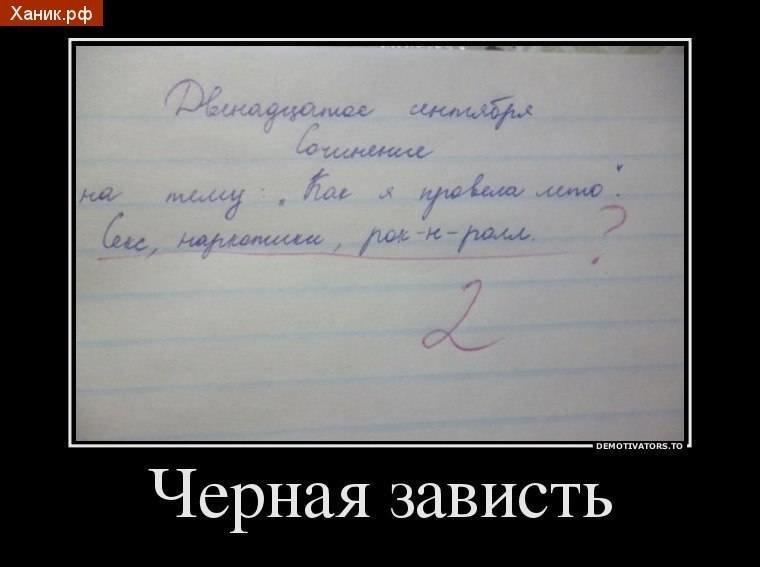 Ханик.рф
Двенадцатое сентября
Сочинение
на тему: „Как я провела лето".
Секс, наркотики, рок-н-ролл. ?
2
DEMOTIVATORS.TO
Черная зависть